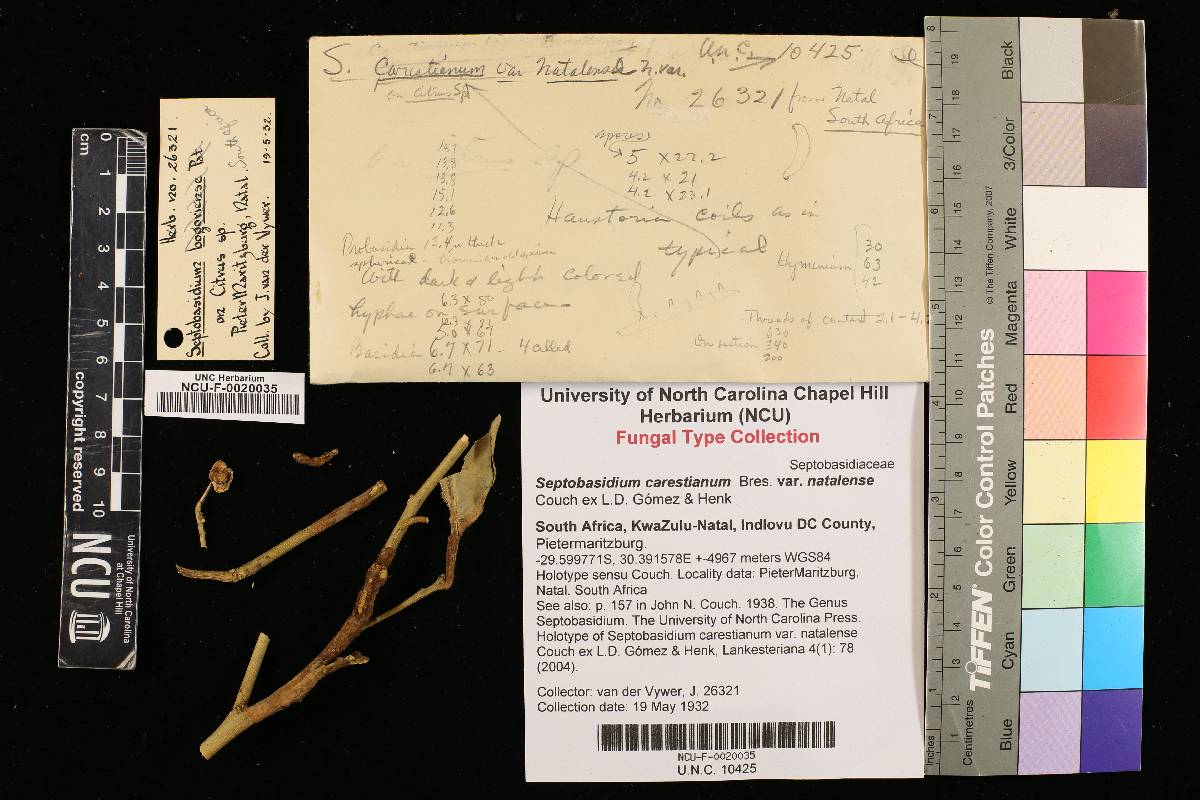 S. Carestianum var Natalense n.var.
U.n.C. 10425
on Citrus Sp
No 26321 from Natal
South Africa
spores
5 x 22.2
4.2 x 21
4.2 x 23.1
13.8
15.1
12.6
11.3
Haustoria coils as in
typical
Probasidia 12.4 u thick
spherical -
With dark & light colored
hyphae on surface
6.3 x 80
5.0 x 67
Basidia 6.7 x 71 - 4 celled
6.7 x 63
Hymenium
30
63
42
Threads of context 2.1 - 4.2
On section
630
340
200
Herb. no. 26321.
Septobasidium bogoriense Pat.
on Citrus sp.
PieterMaritzburg, Natal. South Africa
Coll. by J. van der Vywer. 19-5-32.
UNC Herbarium
NCU-F-0020035
University of North Carolina Chapel Hill
Herbarium (NCU)
Fungal Type Collection
Septobasidiaceae
Septobasidium carestianum Bres. var. natalense
Couch ex L.D. Gómez & Henk
South Africa, KwaZulu-Natal, Indlovu DC County,
Pietermaritzburg.
-29.599771S, 30.391578E +-4967 meters WGS84
Holotype sensu Couch. Locality data: PieterMaritzburg,
Natal. South Africa
See also: p. 157 in John N. Couch. 1938. The Genus
Septobasidium. The University of North Carolina Press.
Holotype of Septobasidium carestianum var. natalense
Couch ex L.D. Gómez & Henk, Lankesteriana 4(1): 78
(2004).
Collector: van der Vywer, J. 26321
Collection date: 19 May 1932
NCU-F-0020035
U.N.C. 10425
cm
0
1
2
3
4
5
6
7
8
9
10
copyright reserved
NCU
University of North Carolina
at Chapel Hill
TIFFEN Color Control Patches
© The Tiffen Company, 2007
Black
3/Color
White
Magenta
Red
Yellow
Green
Cyan
Blue
Inches
Centimetres